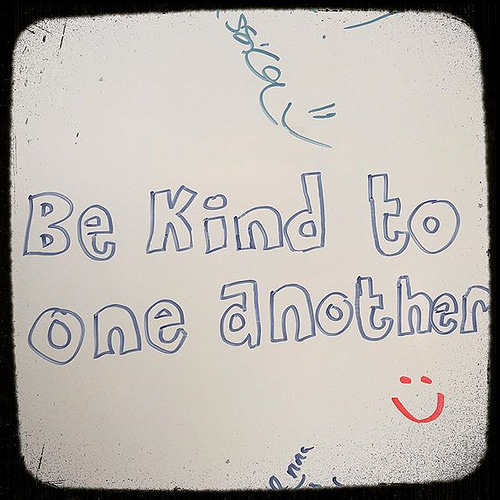 Be Kind to
one another